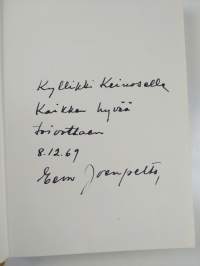 Kyllikki Keinoselle
Kaikkea hyvää
toivottaen
8.12.69
Eeva Joenpelto,